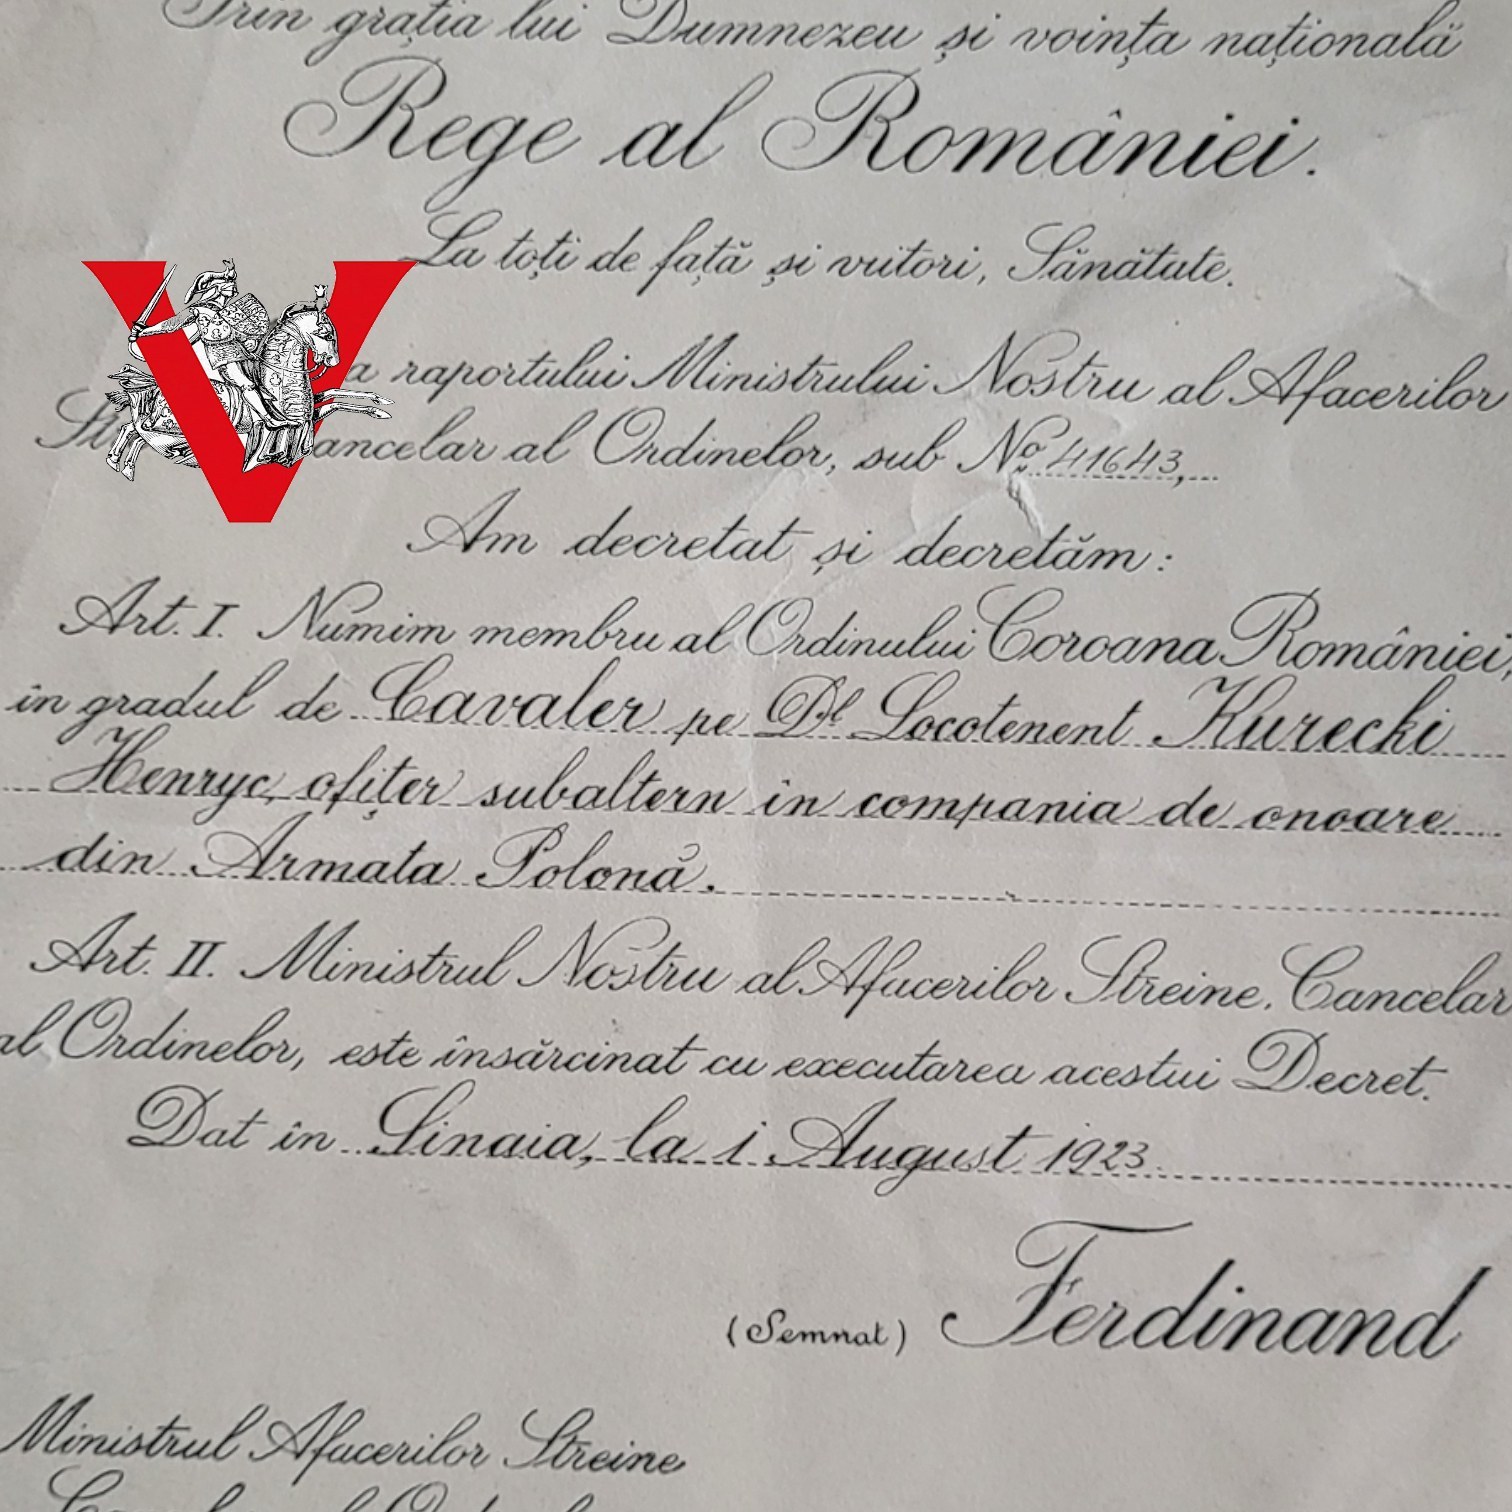 Prin grația lui Dumnezeu și voința națională
Rege al României.
La toți de față și viitori, Sănătate.
a raportului Ministrului Nostru al Afacerilor
St ancelar al Ordinelor, sub Nº 41643,
Am decretat și decretăm:
Art. I. Numim membru al Ordinului Coroana României,
în gradul de Cavaler pe Dl Locotenent Kurecki
Henryc, ofițer subaltern în compania de onoare
din Armata Polonă.
Art. II. Ministrul Nostru al Afacerilor Streine. Cancelar
al Ordinelor, este însărcinat cu executarea acestui Decret.
Dat în Sinaia, la 1 August 1923
(Semnat) Ferdinand
Ministrul Afacerilor Streine
V